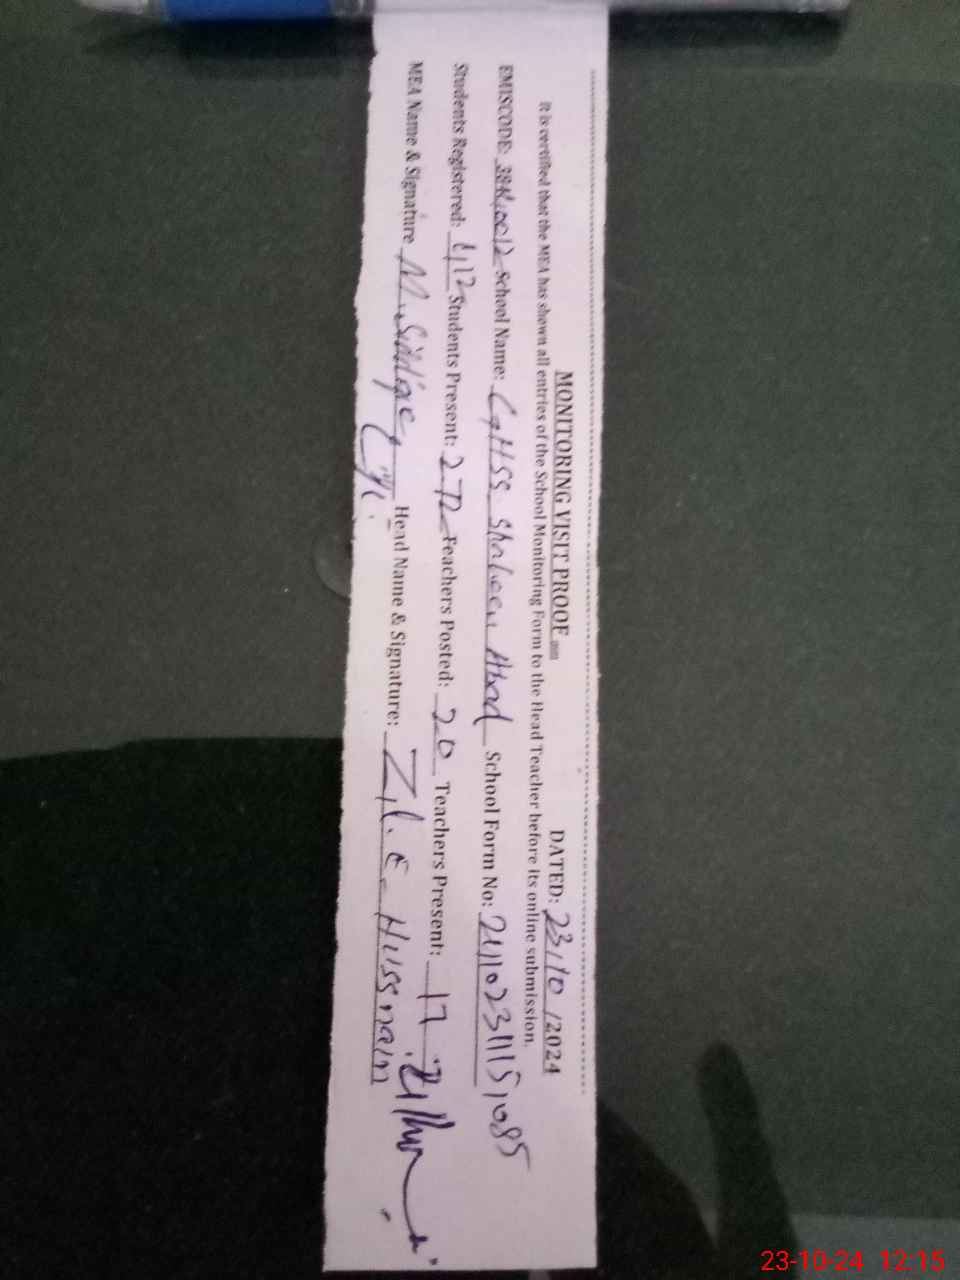 MONITORING VISIT PROOF DATED: 23/10/2024
It is certified that the MEA has shown all entries of the School Monitoring Form to the Head Teacher before its online submission.
EMISCODE: School Name: GHSS Shaheen Abad School Form No:
Students Registered: 412 Students Present: 272 Teachers Posted: 20 Teachers Present: 17
MEA Name & Signature M. Siddique Head Name & Signature: Zil.e-Hussnain
23-10-24 12:15